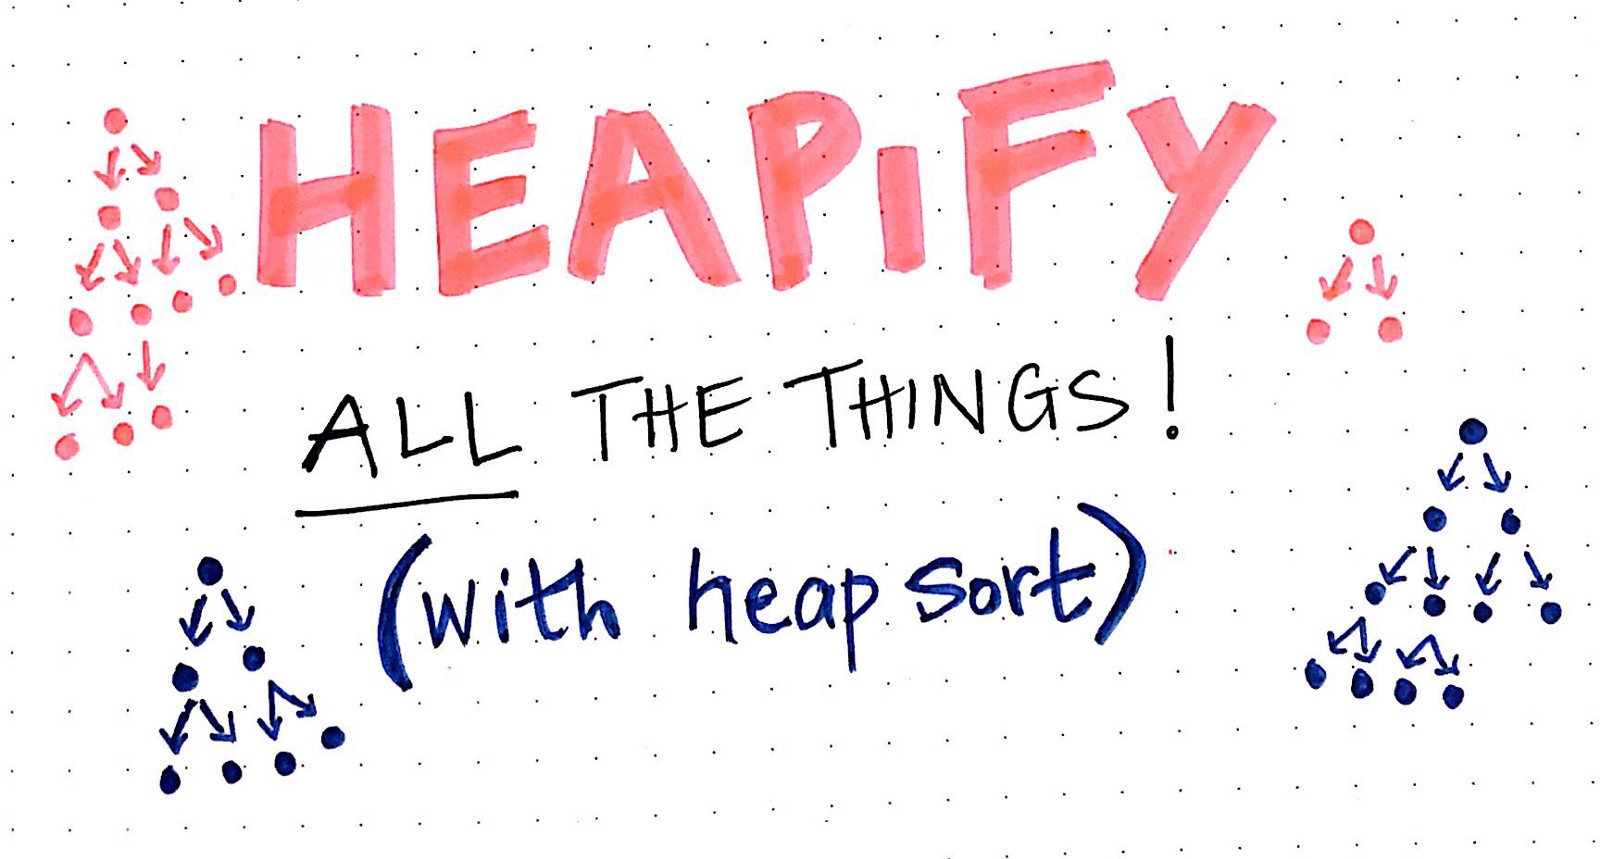 HEAPiFY
ALL THE THINGS!
(with heap sort)